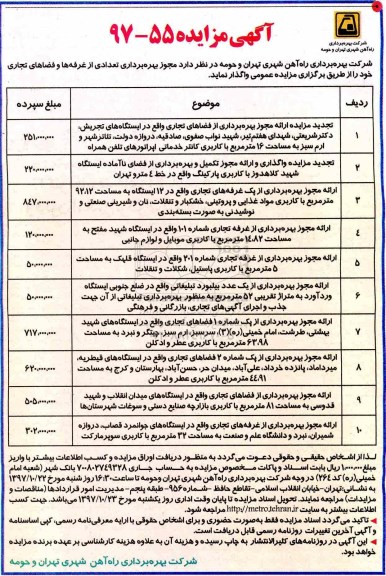 آگهی مزایده ۵۵-۹۷
شرکت بهره‌برداری
راه‌آهن شهری تهران و حومه
شرکت بهره‌برداری راه‌آهن شهری تهران و حومه در نظر دارد مجوز بهره‌برداری تعدادی از غرفه‌ها و فضاهای تجاری
خود را از طریق برگزاری مزایده عمومی واگذار نماید.
ردیف موضوع مبلغ سپرده
۱ تجدید مزایده ارائه مجوز بهره‌برداری از فضاهای تجاری واقع در ایستگاه‌های تجریش،
دکترشریعتی، شهدای هفتم‌تیر، شهید نواب صفوی، صادقیه، دروازه دولت، تئاترشهر و
ارم سبز به مساحت ۱۶ مترمربع با کاربری کانتر خدماتی اپراتورهای تلفن همراه ۲۵۱.۰۰۰.۰۰۰
۲ تجدید مزایده واگذاری و ارائه مجوز تکمیل و بهره‌برداری از فضای ناآماده ایستگاه
شهید کلاهدوز با کاربری پارکینگ واقع در خط ٤ مترو تهران ۲۲۰.۰۰۰.۰۰۰
۳ ارائه مجوز بهره‌برداری از پک غرفه‌های تجاری واقع در ۱۲ ایستگاه به مساحت ۹۲.۱۲
مترمربع با کاربری مواد غذایی و پروتینی، خشکبار و تنقلات، نان و شیرینی صنعتی و
نوشیدنی به صورت بسته‌بندی ۸۴۷.۰۰۰.۰۰۰
۴ ارائه مجوز بهره‌برداری از غرفه تجاری شماره ۱۰۱ واقع در ایستگاه شهید مفتح به
مساحت ۱۴.۸۲ مترمربع با کاربری موبایل و لوازم جانبی ۱۲۰.۰۰۰.۰۰۰
۵ ارائه مجوز بهره‌برداری از غرفه تجاری شماره ۲۰۱ واقع در ایستگاه قلهک به مساحت
۵ مترمربع با کاربری پاستیل، شکلات و تنقلات ۵۰.۰۰۰.۰۰۰
۶ ارائه مجوز بهره‌برداری از یک عدد بیلبورد تبلیغاتی واقع در ضلع جنوبی ایستگاه
وردآورد به متراژ تقریبی ۵۲ مترمربع به منظور بهره‌برداری تبلیغاتی از آن جهت
جذب و اجرای آگهی‌های تجاری، بازرگانی و فرهنگی ۵۰.۰۰۰.۰۰۰
۷ ارائه مجوز بهره‌برداری از پک شماره ۱ فضاهای تجاری واقع در ایستگاه‌های شهید
بهشتی، طرشت، امام خمینی(ره)(۳)، سرسبز، ارم سبز، چیتگر و نبرد به مساحت
۶۳.۹۸ مترمربع با کاربری عطر و ادکلن ۷۱۷.۰۰۰.۰۰۰
۸ ارائه مجوز بهره‌برداری از پک شماره ۲ فضاهای تجاری واقع در ایستگاه‌های قیطریه،
میرداماد، پانزده خرداد، علی‌آباد، میدان حر، حسن‌آباد، بهارستان و کرج به مساحت
۴۴.۹۱ مترمربع با کاربری عطر و ادکلن ۶۲۰.۰۰۰.۰۰۰
۹ ارائه مجوز بهره‌برداری از فضاهای تجاری واقع در ایستگاه‌های میدان انقلاب و شهید
قدوسی به مساحت ۸۱ مترمربع با کاربری بازارچه صنایع دستی و سوغات شهرستان‌ها ۵۰۵.۰۰۰.۰۰۰
۱۰ ارائه مجوز بهره‌برداری از غرفه‌های تجاری واقع در ایستگاه‌های جوانمرد قصاب، دروازه
شمیران، نبرد و دانشگاه علم و صنعت به مساحت ۳۲ مترمربع با کاربری سوپرمارکت ۳۰۲.۰۰۰.۰۰۰
لذا از اشخاص حقیقی و حقوقی دعوت می‌گردد به منظور دریافت اوراق مزایده و کسب اطلاعات بیشتر با واریز
۱.۰۰۰.۰۰۰ ریال بابت اسناد و پاکات مخصوص مزایده به حساب جاری ۷۰۰۸۰۲۷۴۹۳۲۸ بانک شهر (شعبه امام
خمینی(ره) کد ۲۶۴) در وجه شرکت بهره‌برداری راه‌آهن شهری تهران و حومه تا ساعت ۱۶:۳۰ روز شنبه مورخ ۱۳۹۷/۱۰/۲۲
به نشانی: تهران- خیابان انقلاب اسلامی- تقاطع حافظ -شماره ۹۵۶- طبقه پنجم - مدیریت امور قراردادها (مناقصات و
مزایدات) مراجعه نمایند. تحویل اسناد مزایده تا پایان وقت اداری روز یکشنبه مورخ ۱۳۹۷/۱۰/۲۳ می‌باشد. جهت کسب
اطلاعات بیشتر به سایت http://metro.tehran.ir مراجعه شود.
تاکید می‌گردد اسناد مزایده فقط به‌صورت حضوری و برای اشخاص حقوقی با ارایه معرفی‌نامه رسمی، کپی اساسنامه
و آگهی آخرین تغییرات روزنامه رسمی قابل دریافت است.
این آگهی در روزنامه‌های کثیرالانتشار به چاپ رسیده و هزینه آن به علاوه هزینه کارشناسی بر عهده برنده مزایده
خواهد بود.
شرکت بهره‌برداری راه‌آهن شهری تهران و حومه